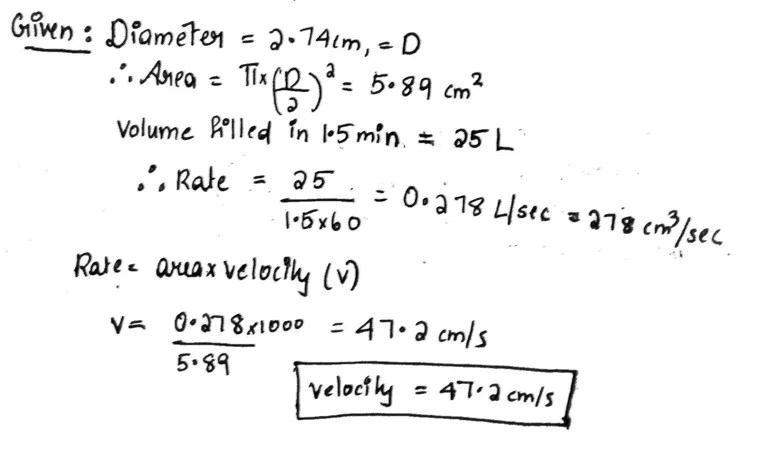 Given: Diameter = 2.74cm, = D
∴ Area = π×(D/2)² = 5.89 cm²
Volume filled in 1.5min. = 25L
∴ Rate = 25/1.5×60 = 0.278 L/sec = 278 cm³/sec
Rate = area×velocity (v)
V= 0.278×1000/5.89 = 47.2 cm/s
velocity = 47.2 cm/s